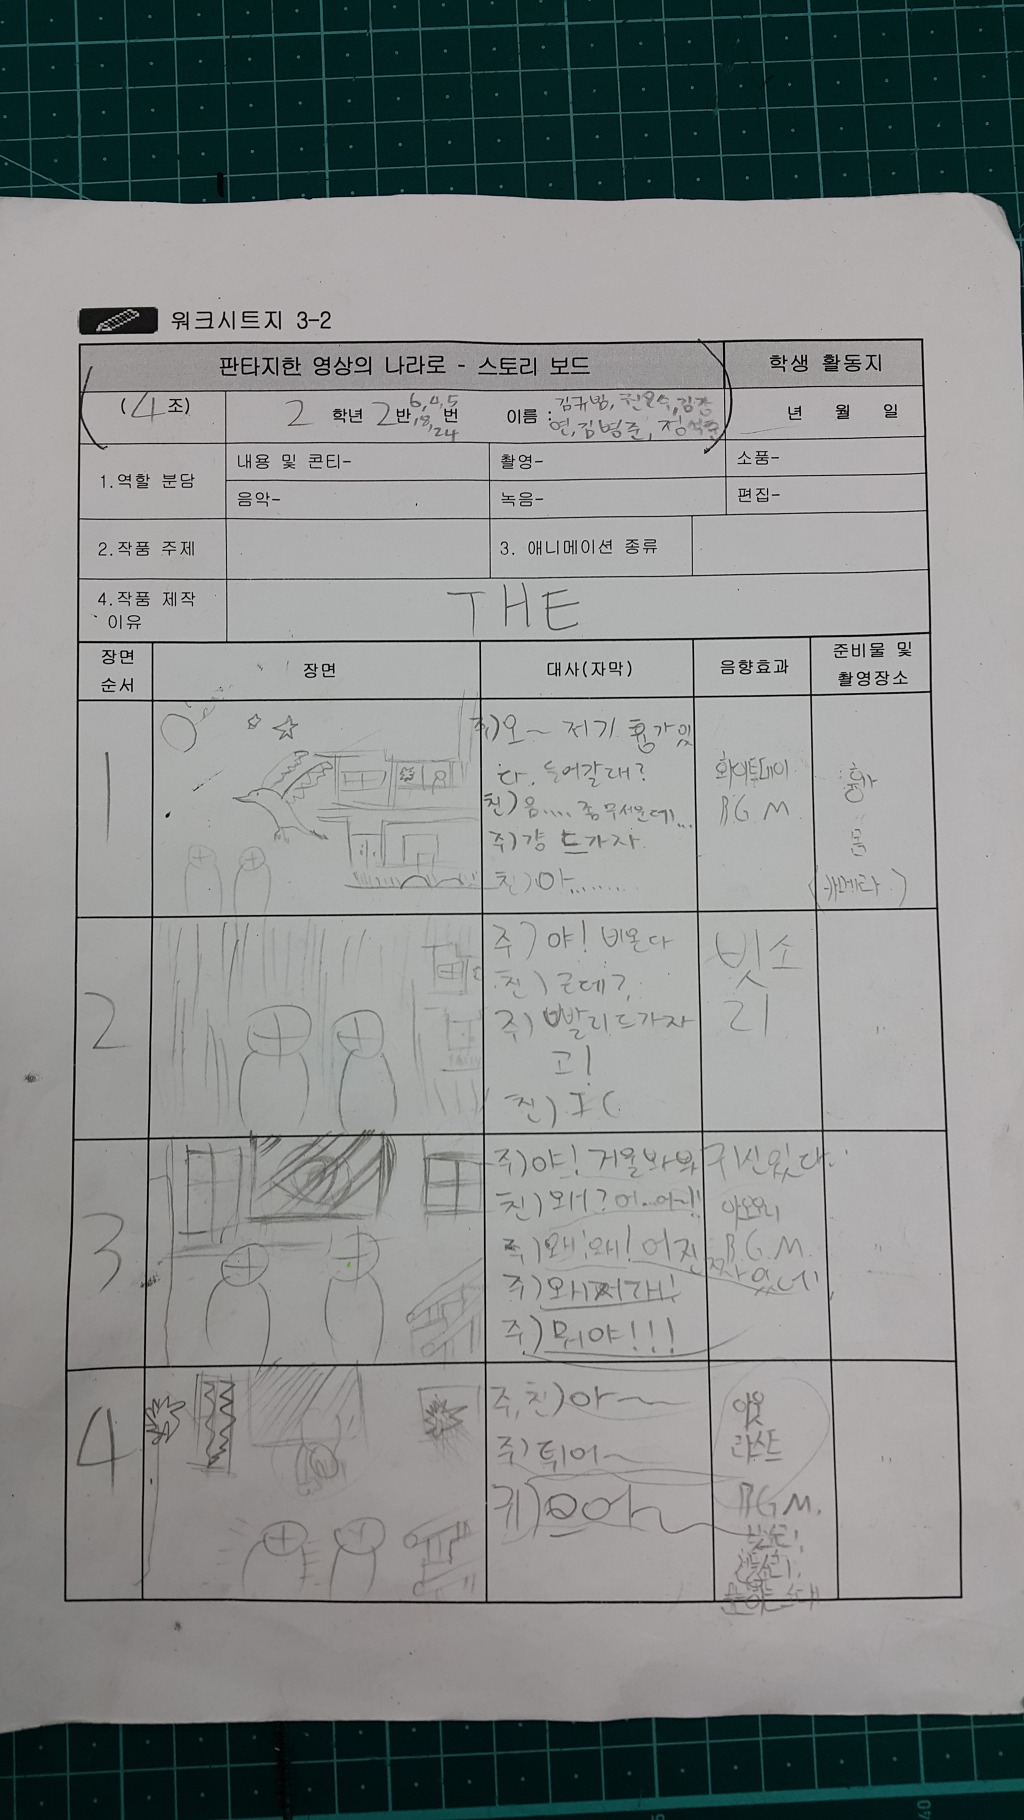 워크시트지 3-2
판타지한 영상의 나라로 - 스토리 보드
학생 활동지
(4조)
2 학년 2반 6,4,5 18,24 번
이름 : 김규범, 김강
연, 김병준, 정석준
년 월 일
1.역할 분담
내용 및 콘티-
촬영-
소품-
음악-
녹음-
편집-
2.작품 주제
3. 애니메이션 종류
4.작품 제작
이유
THE
장면
순서
장면
대사(자막)
음향효과
준비물 및
촬영장소
1
주)오~ 저기 흉가있
다. 들어갈래?
친)음.... 좀 무서운데...
주)걍 드가자
친)아........
B.G.M
흉가
몸
(카메라)
2
주)야! 비온다
친)근데?
주)빨리드가자
고!
친)IC
빗소
리
"
3
주)야! 거울봐봐 귀신있다.
친)왜?어..어~!!
주)왜!왜! 어진짜있네!
주)왜저래!
주)뭐야!!!
B.G.M.
"
4
주,친)아~
주)튀어~
귀)으아~
아웃
라스트
B.G.M.
빗소리!
"
40